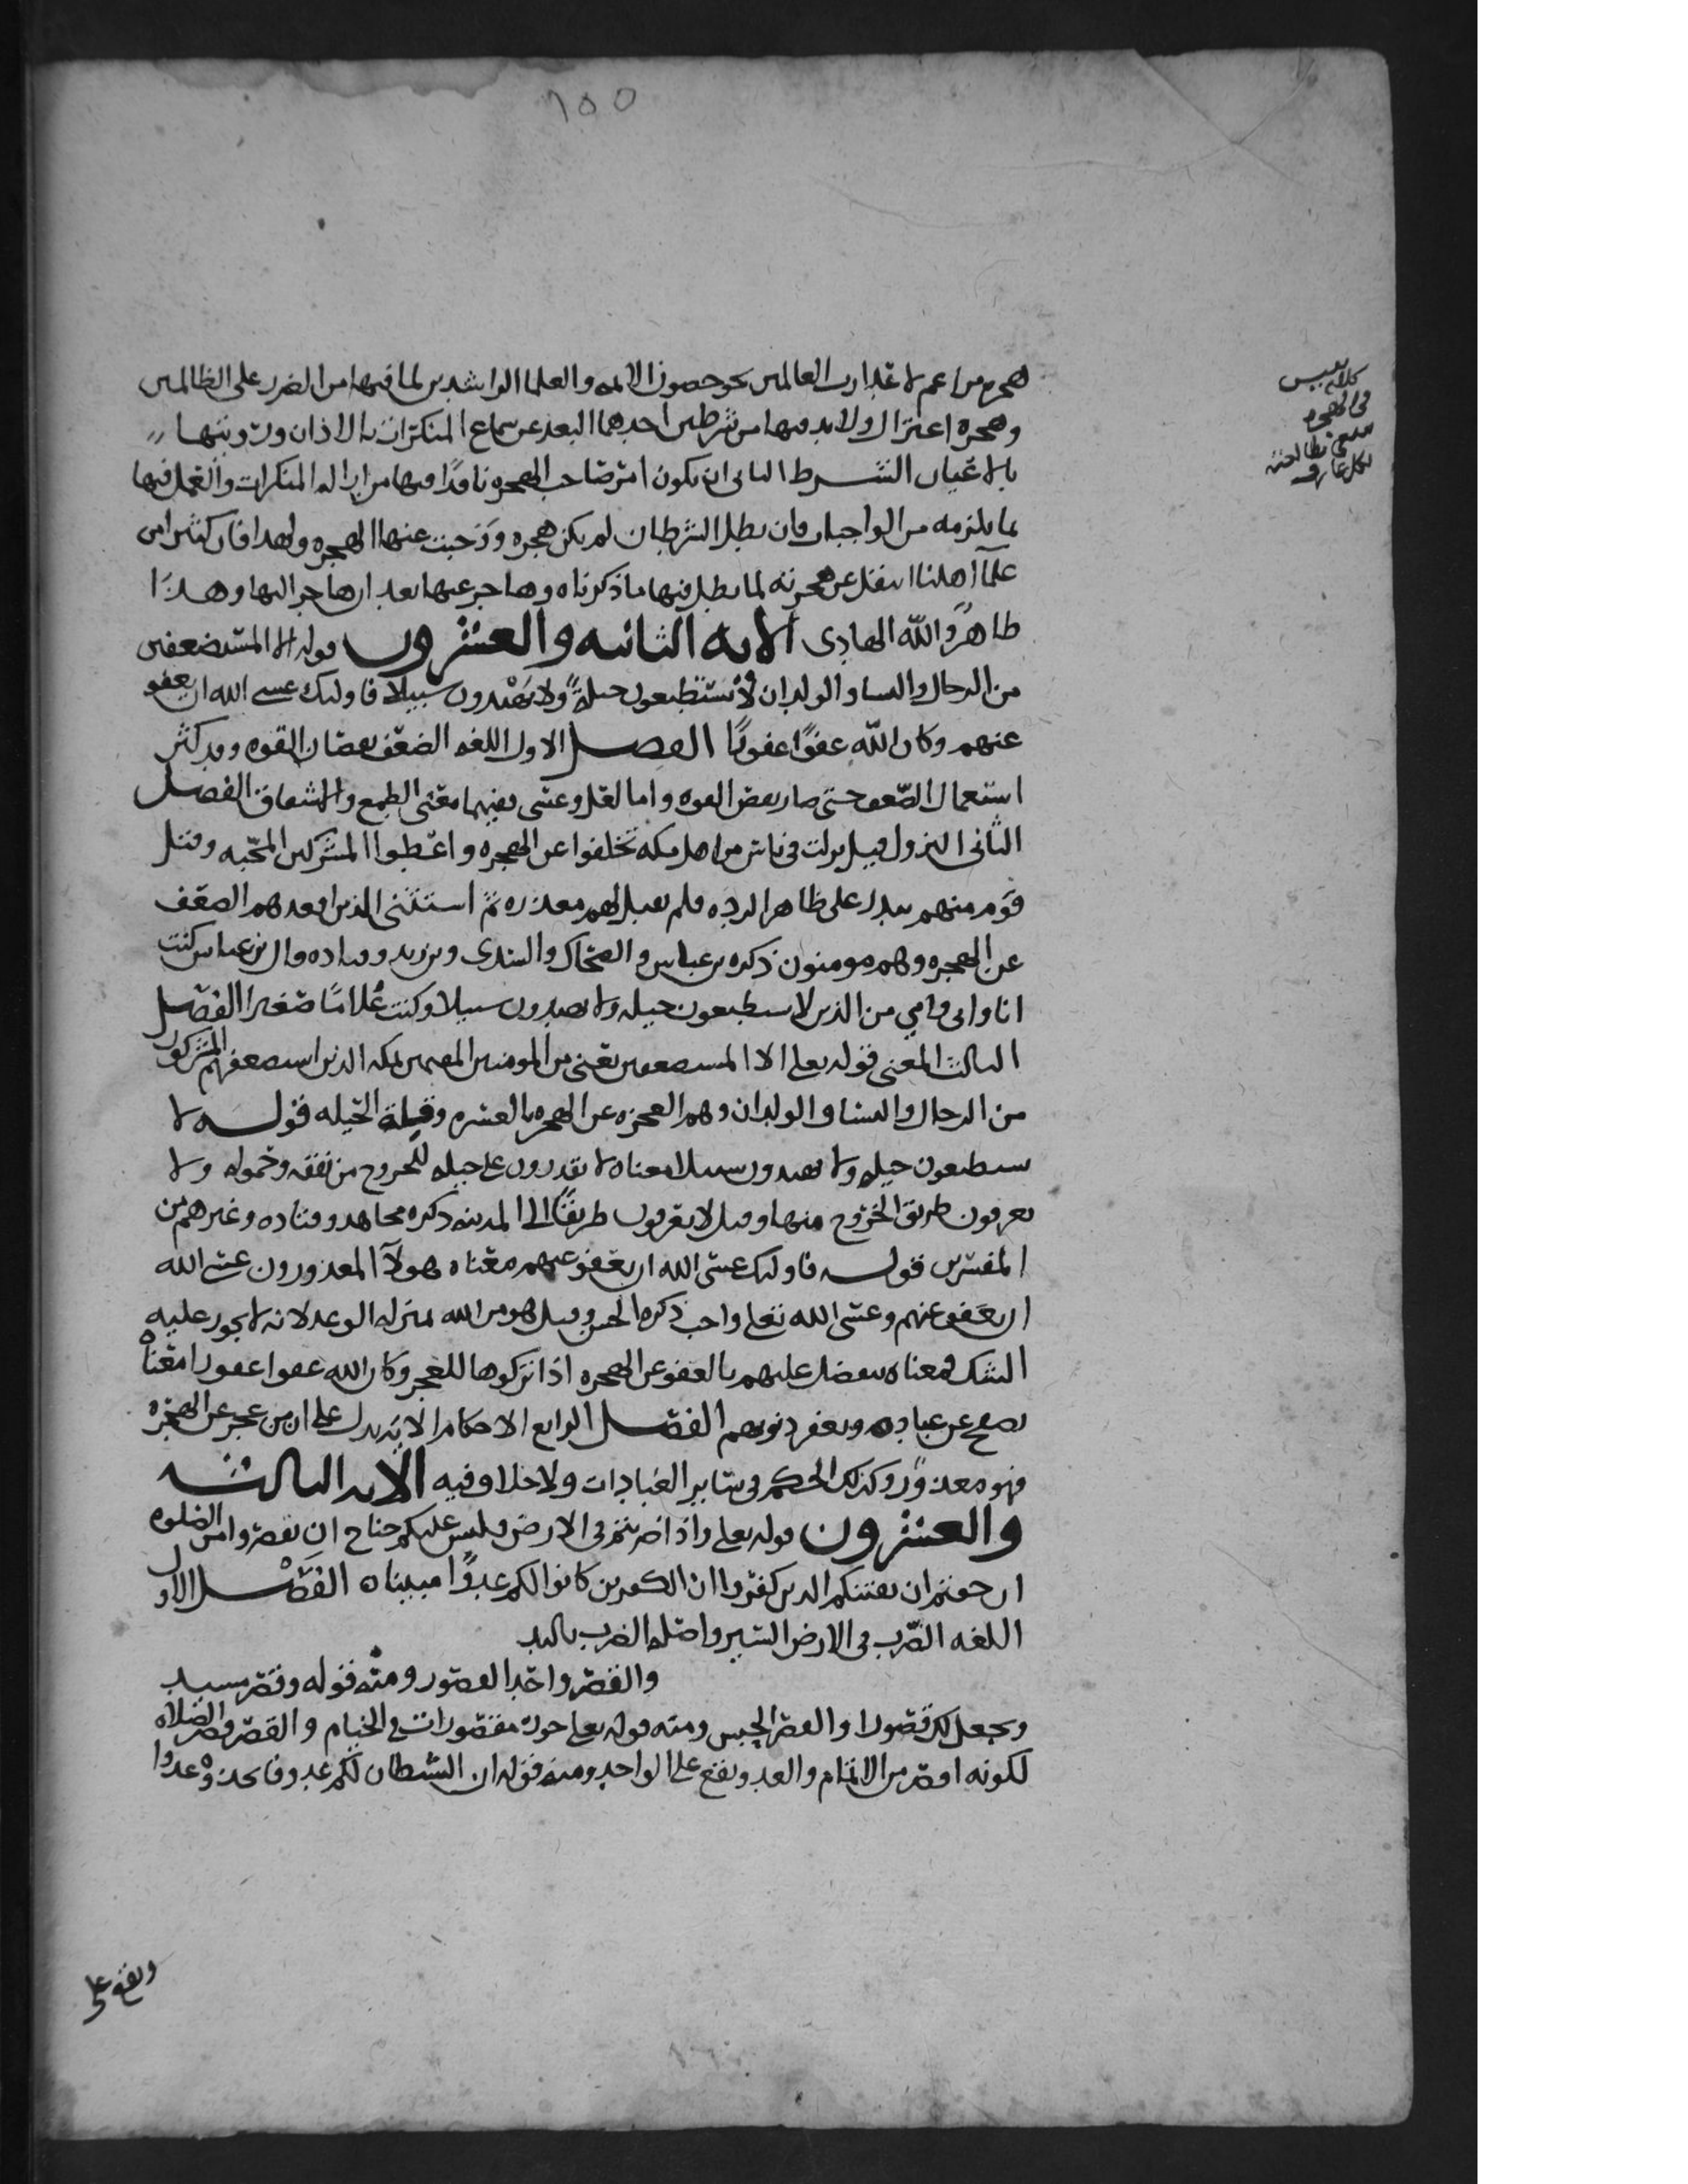 ١٥٥
هجر من اعم لاعدا رب العالمين نحو حصون الايمه والعلما الراشدين لما فيها من الضرر على الظالمين
وهجره اعتزال ولا بد فيها من شرطين احدهما البعد عن سماع المنكرات بالاذان ورويتها
بالاعيان الشرط الثانى ان يكون امر صاحب الهجره نافذا فيها من ازاله المنكرات والعمل فيها
بما يلزمه من الواجبات فان بطل الشرطان لم يكن هجره ووجبت عنها الهجره ولهذا فان كثيرا من
علمآ اهلنا انتقل عن هجرته لما بطل فيها ما ذكرناه وهاجر عنها بعد ان هاجر اليها وهذا
ظاهر والله الهادى الايه الثانيه والعشرون قوله الا المستضعفين
من الرجال والنسا والولدان لا يستطيعون حيلة ولا يهتدون سبيلا فاوليك عسى الله ان يعفو
عنهم وكان الله عفوا غفورا الفصل الاول اللغه الضعف نقصان القوه وقد كثر
استعمال الضعف حتى صار بعض القوه واما لعل وعسى ففيهما معنى الطمع والاشفاق الفصل
الثانى النزول قيل نزلت فى ناس من اهل مكه تخلفوا عن الهجره واعطوا المشركين المحبه وقتل
قوم منهم ببدر على ظاهر الرده فلم يقبل لهم معذره ثم استثنى الذين اقعدهم الضعف
عن الهجره وهم مومنون ذكره بن عباس والضحاك والسدى وبن زيد وقتاده قال بن عباس كنت
انا وابى وامي من الذين لا يستطيعون حيله ولا يهتدون سبيلا وكنت غلاما صغيرا الفصل
الثالث المعنى قوله تعالى الا المستضعفين يعنى من المومنين المقيمين بمكه الذين استضعفهم المشركون
من الرجال والنسا والولدان وهم العجزه عن الهجره بالعسره وقلة الحيله قوله لا
يستطيعون حيله ولا يهتدون سبيلا معناه لا يقدرون على حيله للخروج من نفقه وحموله ولا
يعرفون طريق الخروج منها وقيل لا يعرفون طريقا الى المدينه ذكره مجاهد وقتاده وغيرهم من
المفسرين قوله فاوليك عسى الله ان يعفو عنهم معناه هولآ المعذورون عسى الله
ان يعفو عنهم وعسى الله تعالى واجب ذكره الحسن وقيل هو من الله بمنزله الوعد لانه لا يجوز عليه
الشك فمعناه تفضل عليهم بالعفو عن الهجره اذا تركوها للعجز وكان الله عفوا غفورا معناه
يصفح عن عباده ويغفر ذنوبهم الفصل الرابع الاحكام الايه تدل على ان من عجز عن الهجره
فهو معذور وكذلك الحكم فى ساير العبادات ولا خلاف فيه الايه الثالثه
والعشرون قوله تعالى واذا ضربتم فى الارض فليس عليكم جناح ان تقصروا من الصلوه
ان خفتم ان يفتنكم الذين كفروا ان الكفرين كانوا لكم عدوا مبينا الفصل الاول
اللغه الضرب فى الارض السير واصله الضرب باليد
والقصر واحد القصور ومنه قوله وقصر مشيد
ويجعل لك قصورا والقصر الحبس ومنه قوله تعالى حور مقصورات فى الخيام والقصر قصر الصلاه
لكونه اقصر من الاتمام والعدو يقع على الواحد ومنه قوله ان الشيطان لكم عدو فاتخذوه عدوا
ويقع على
كلام نفيس
فى الهجره
ينبغى مطالعته
لكل عارف